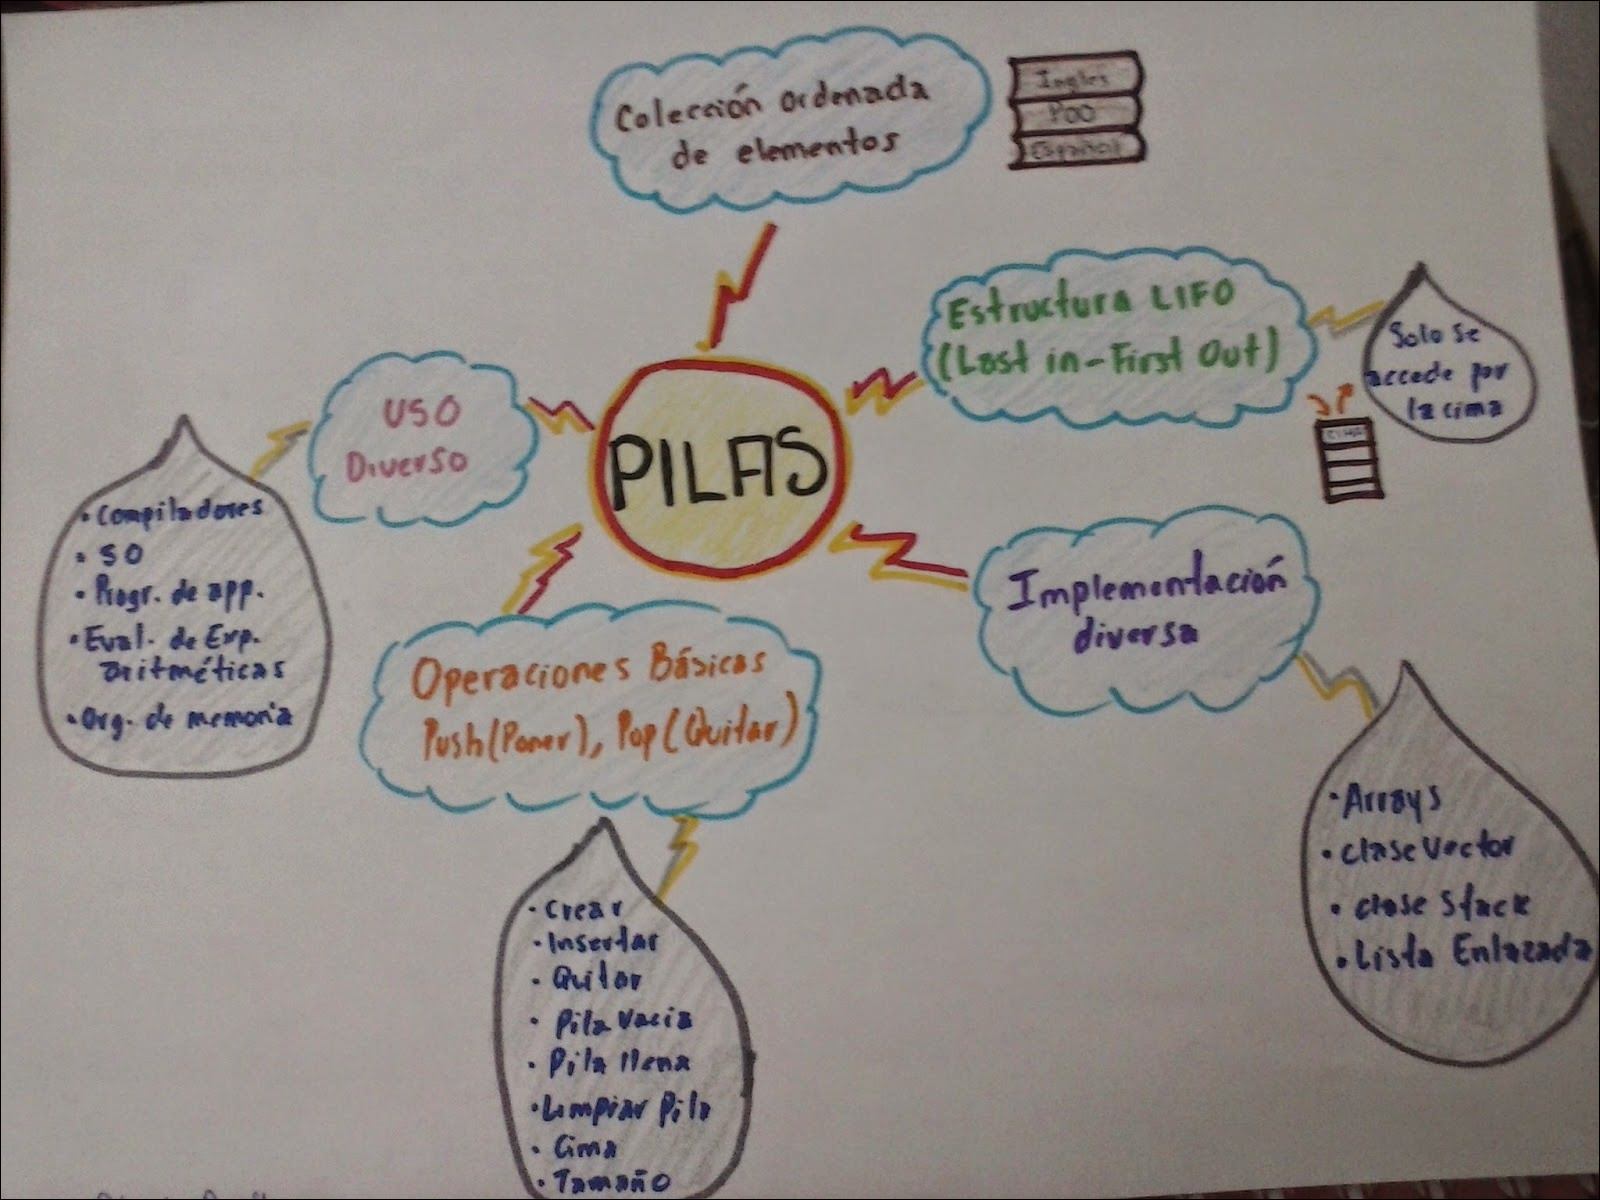 Colección ordenada
de elementos
Ingles
POO
Español
Estructura LIFO
(Last in-First Out)
Solo se
accede por
la cima
CIMA
USO
Diverso
PILAS
• Compiladores
• SO
• Progr. de app.
• Eval. de Exp.
aritméticas
• Org. de memoria
Implementación
diversa
Operaciones Básicas
Push(Poner), Pop(Quitar)
• Arrays
• clase Vector
• clase Stack
• Lista Enlazada
• Crear
• Insertar
• Quitar
• Pila Vacia
• Pila llena
• Limpiar Pila
• Cima
• Tamaño